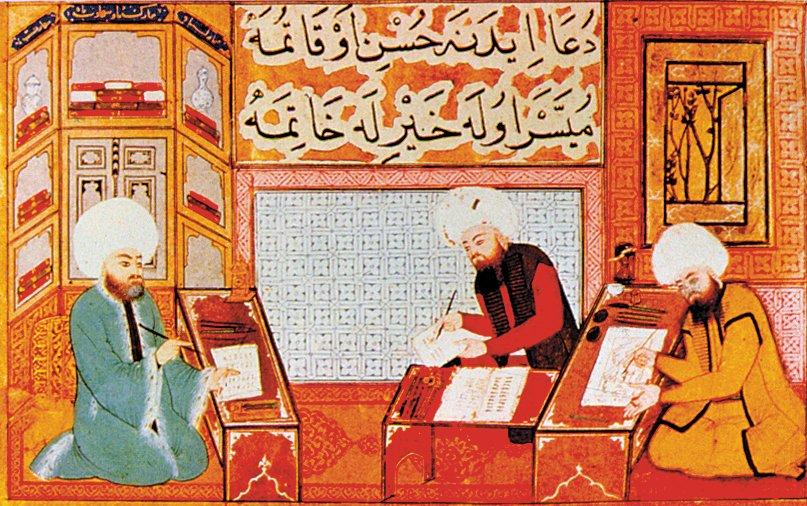 دُعَا اِيدَنَه حُسْنِ اَوْقَاتُمَهْ
مُيَسَّرْ اُولَه خَيْرِلَه خَاتِمَهْ